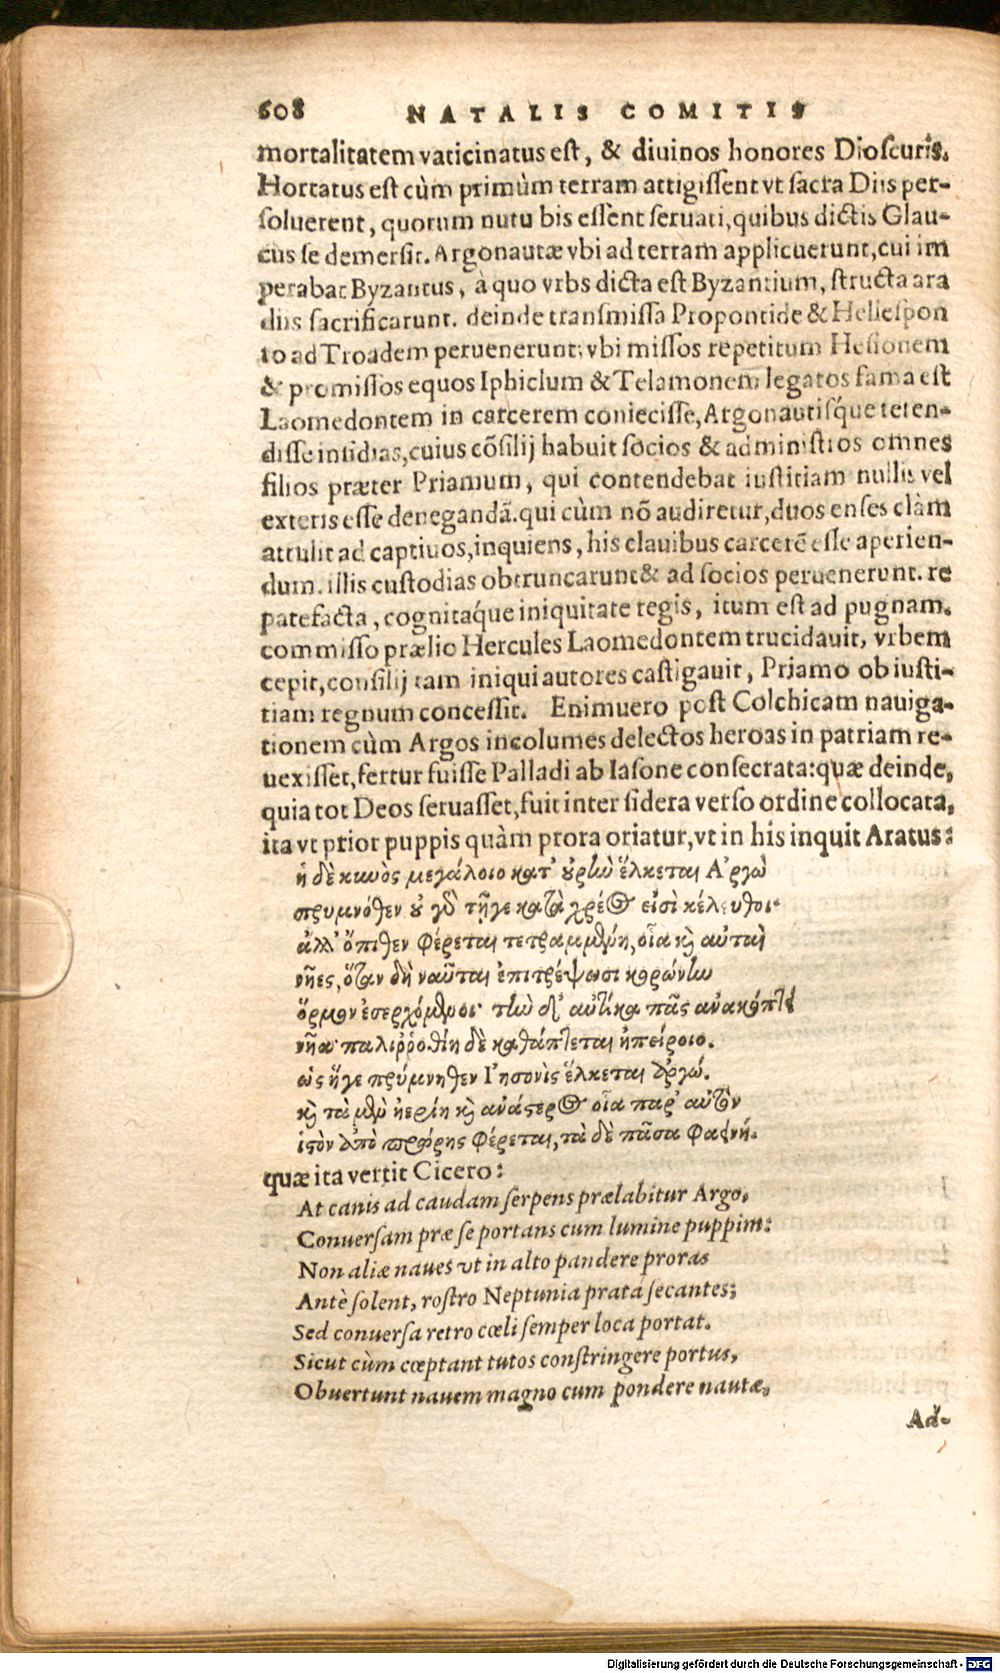 608 NATALIS COMITIS
mortalitatem vaticinatus est, & diuinos honores Dioscuris.
Hortatus est cùm primùm terram attigissent vt sacra Diis per-
soluerent, quorum nutu bis essent seruati, quibus dictis Glau-
cus se demersit. Argonautæ vbi ad terram applicuerunt, cui im
perabat Byzantus, à quo vrbs dicta est Byzantium, structa ara
diis sacrificarunt. deinde transmissa Propontide & Hellespon
to ad Troadem peruenerunt: vbi missos repetitum Hesionem
& promissos equos Iphiclum & Telamonem legatos fama est
Laomedontem in carcerem coniecisse, Argonautisq́ue teten-
disse insidias, cuius cõsilij habuit socios & administros omnes
filios præter Priamum, qui contendebat iustitiam nullis vel
exteris esse denegandã. qui cùm nõ audiretur, duos enses clàm
attulit ad captiuos, inquiens, his clauibus carcerẽ esse aperien-
dum. illis custodias obtruncarunt & ad socios peruenerunt. re
patefacta, cognitaq́ue iniquitate regis, itum est ad pugnam.
commisso prælio Hercules Laomedontem trucidauit, vrbem
cepit, consilij tam iniqui autores castigauit, Priamo ob iusti-
tiam regnum concessit. Enimuero post Colchicam nauiga-
tionem cùm Argos incolumes delectos heroas in patriam re-
uexisset, fertur fuisse Palladi ab Iasone consecrata: quæ deinde,
quia tot Deos seruasset, fuit inter sidera verso ordine collocata,
ita vt prior puppis quàm prora oriatur, vt in his inquit Aratus:
ἡ δὲ κυνὸς μεγάλοιο κατ' οὐρὴν ἕλκεται Ἀργὼ
πρυμνόθεν οὐ γὰρ τῆγε κατὰ χρέος εἰσὶ κέλευθοι·
ἀλλ' ὄπιθεν φέρεται τετραμμένη, οἷα καὶ αὐταὶ
νῆες, ὅταν δὴ ναῦται ἐπιτρέψωσι κορώνην
ὅρμον ἐσερχόμενοι· τὴν δ' αὐτίκα πᾶς ἀνακόπτει
νῆα· παλιῤῥοθίη δὲ καθάπτεται ἠπείροιο.
ὡς ἥγε πρύμνηθεν Ἰησονὶς ἕλκεται Ἀργώ.
καὶ τὰ μὲν ἠερίη καὶ ἀνάστερος οἷα παρ' αὐτὸν
ἱστὸν ἀπὸ πρώρης φέρεται, τὰ δὲ πᾶσα φαεινή.
quæ ita vertit Cicero:
At canis ad caudam serpens prælabitur Argo,
Conuersam præ se portans cum lumine puppim:
Non aliæ naues vt in alto pandere proras
Antè solent, rostro Neptunia prata secantes;
Sed conuersa retro cœli semper loca portat.
Sicut cùm cœptant tutos constringere portus,
Obuertunt nauem magno cum pondere nautæ,
Ad-
Digitalisierung gefördert durch die Deutsche Forschungsgemeinschaft - DFG